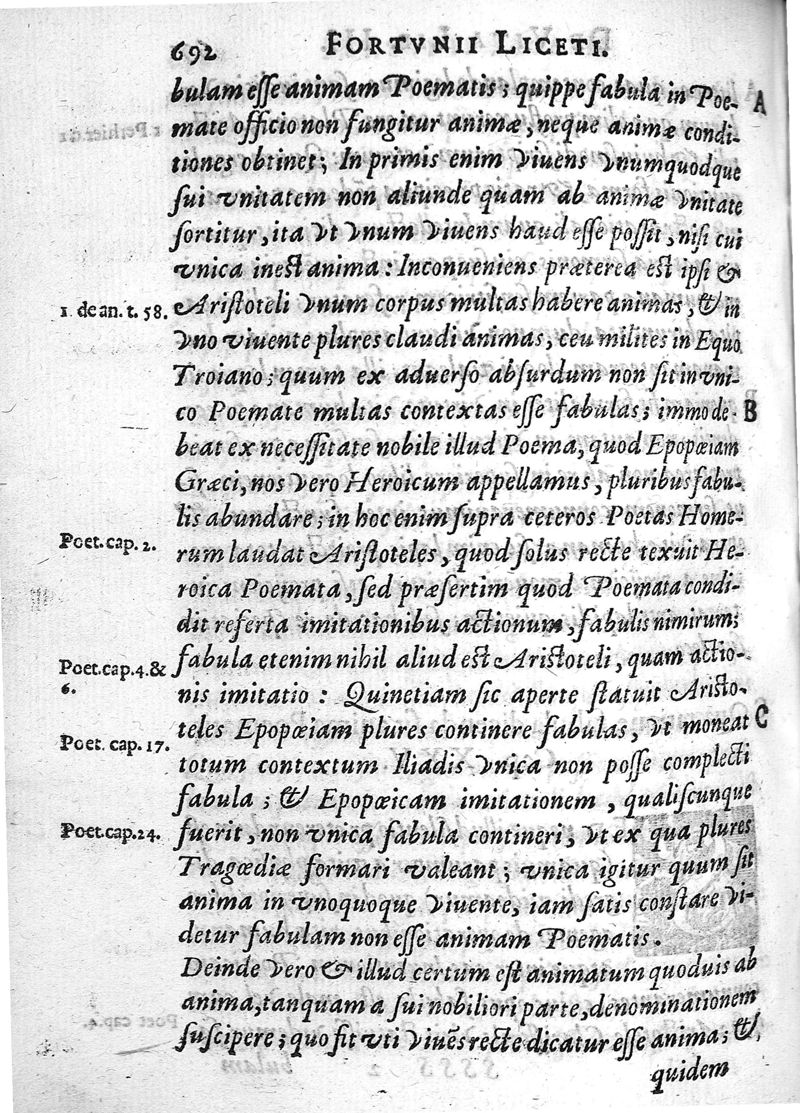 692 FORTVNII LICETI.
bulam esse animam Poematis; quippe fabula in Poe- A
mate officio non fungitur animæ, neque animæ condi-
tiones obtinet; In primis enim viuens vnumquodque
sui vnitatem non aliunde quam ab animæ vnitate
sortitur, ita vt vnum viuens haud esse possit, nisi cui
vnica inest anima: Inconueniens præterea est ipsi &
1. de an. t. 58. Aristoteli vnum corpus multas habere animas, & in
vno viuente plures claudi animas, ceu milites in Equo
Troiano; quum ex aduerso absurdum non sit in vni-
co Poemate multas contextas esse fabulas; immo de- B
beat ex necessitate nobile illud Poema, quod Epopœiam
Græci, nos vero Heroicum appellamus, pluribus fabu-
lis abundare; in hoc enim supra ceteros Poetas Home-
Poet. cap. 2. rum laudat Aristoteles, quod solus recte texuit He-
roica Poemata, sed præsertim quod Poemata condi-
dit referta imitationibus actionum, fabulis nimirum;
Poet. cap. 4. & fabula etenim nihil aliud est Aristoteli, quam actio-
6. nis imitatio: Quinetiam sic aperte statuit Aristo-
teles Epopœiam plures continere fabulas, vt moneat C
Poet. cap. 17. totum contextum Iliadis vnica non posse complecti
fabula; & Epopœicam imitationem, qualiscunque
Poet. cap. 24. fuerit, non vnica fabula contineri, vt ex qua plures
Tragœdiæ formari valeant; vnica igitur quum sit
anima in vnoquoque viuente, iam satis constare vi-
detur fabulam non esse animam Poematis.
Deinde vero & illud certum est animatum quoduis ab
anima, tanquam a sui nobiliori parte, denominationem
suscipere; quo fit vti viuẽs recte dicatur esse anima; &
quidem